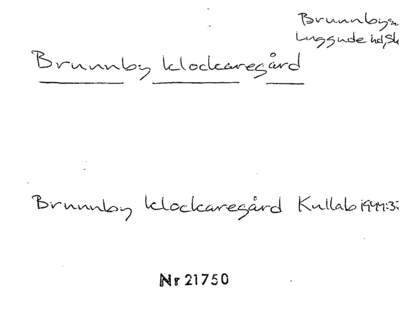 Brunnby sn
Luggude hd, Sk
Brunnby klockaregård
Brunnby klockaregård Kullab 1947:3
Nr 21750